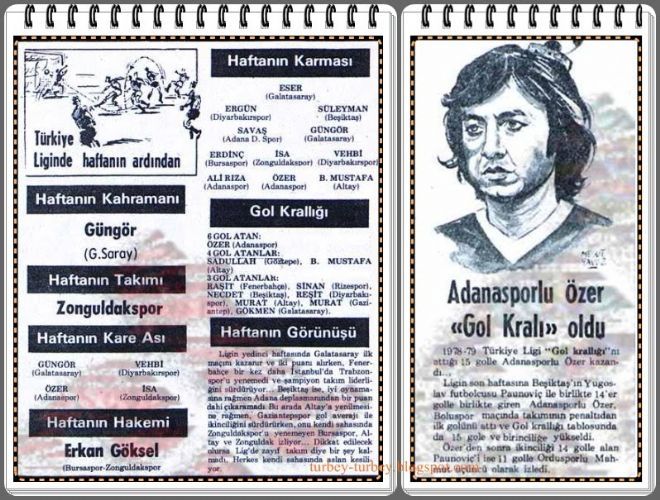 Türkiye
Liginde haftanın ardından
Haftanın Kahramanı
Güngör
(G.Saray)
Haftanın Takımı
Zonguldakspor
Haftanın Kare Ası
GÜNGÖR
(Galatasaray)
VEHBİ
(Diyarbakırspor)
ÖZER
(Adanaspor)
İSA
(Zonguldakspor)
Haftanın Hakemi
Erkan Göksel
(Bursaspor-Zonguldakspor
Haftanın Karması
ESER
(Galatasaray)
ERGÜN
(Diyarbakırspor)
SÜLEYMAN
(Beşiktaş)
SAVAŞ
(Adana D. Spor)
GÜNGÖR
(Galatasaray)
ERDİNÇ
(Bursaspor)
İSA
(Zonguldakspor)
VEHBİ
(Diyarbakırspor)
ALİ RIZA
(Adanaspor)
ÖZER
(Adanaspor)
B. MUSTAFA
(Altay)
Gol Krallığı
6 GOL ATAN:
ÖZER (Adanaspor)
4 GOL ATANLAR:
SADULLAH (Göztepe), B. MUSTAFA
(Altay)
3 GOL ATANLAR:
RAŞİT (Fenerbahçe), SİNAN (Rizespor),
NECDET (Beşiktaş), REŞİT (Diyarbakı-
rspor), MURAT (Altay), MURAT (Gazi-
antep), GÖKMEN (Galatasaray).
Haftanın Görünüşü
Ligin yedinci haftasında Galatasaray ilk
maçını kazanır ve iki puanı alırken, Fener-
bahçe bir kez daha İstanbul'da Trabzon-
spor'u yenemedi ve şampiyon takım liderli-
ğini sürdürüyor... Beşiktaş ise, iyi oynama-
sına rağmen Adana deplasmanından bir puan
dahi çıkaramadı. Bu arada Altay'a yenilmesi-
ne rağmen, Gaziantepspor gol averajı ile
ikinciliğini sürdürürken, onu kendi sahasında
Zonguldakspor'u yenemeyen Bursaspor, Al-
tay ve Zonguldak izliyor... Dikkat edilecek
olursa Lig'de zayıf takım diye bir şey kal-
madı. Herkes kendi sahasında aslan kesili-
yor.
Adanasporlu Özer
«Gol Kralı» oldu
1978-79 Türkiye Ligi "Gol krallığı"nı
attığı 15 golle Adanasporlu Özer kazan-
dı...
Ligin son haftasına Beşiktaş'ın Yugos-
lav futbolcusu Paunoviç ile birlikte 14'er
golle birlikte giren Adanasporlu Özer,
Boluspor maçında takımının penaltıdan
ilk golünü attı ve Gol krallığı tablosunda
da 15 gole ve birinciliğe yükseldi.
Özer'den sonra ikinciliği 14 golle alan
Paunoviç'i ise 11 golle Ordusporlu Mah-
mut üçüncü olarak izledi.
turbey-turbey.blogspot.com